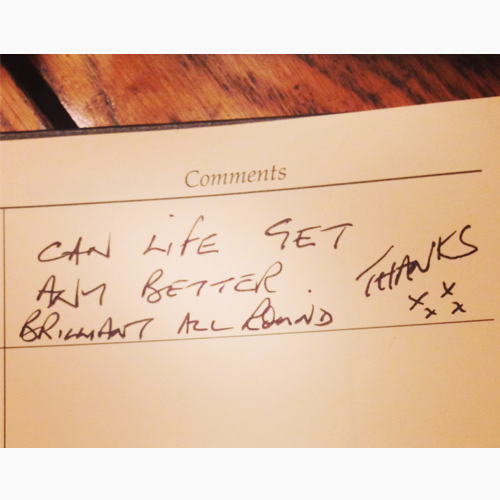 Comments
CAN LIFE GET
ANY BETTER.
BRILLIANT ALL ROUND
THANKS
xxxx